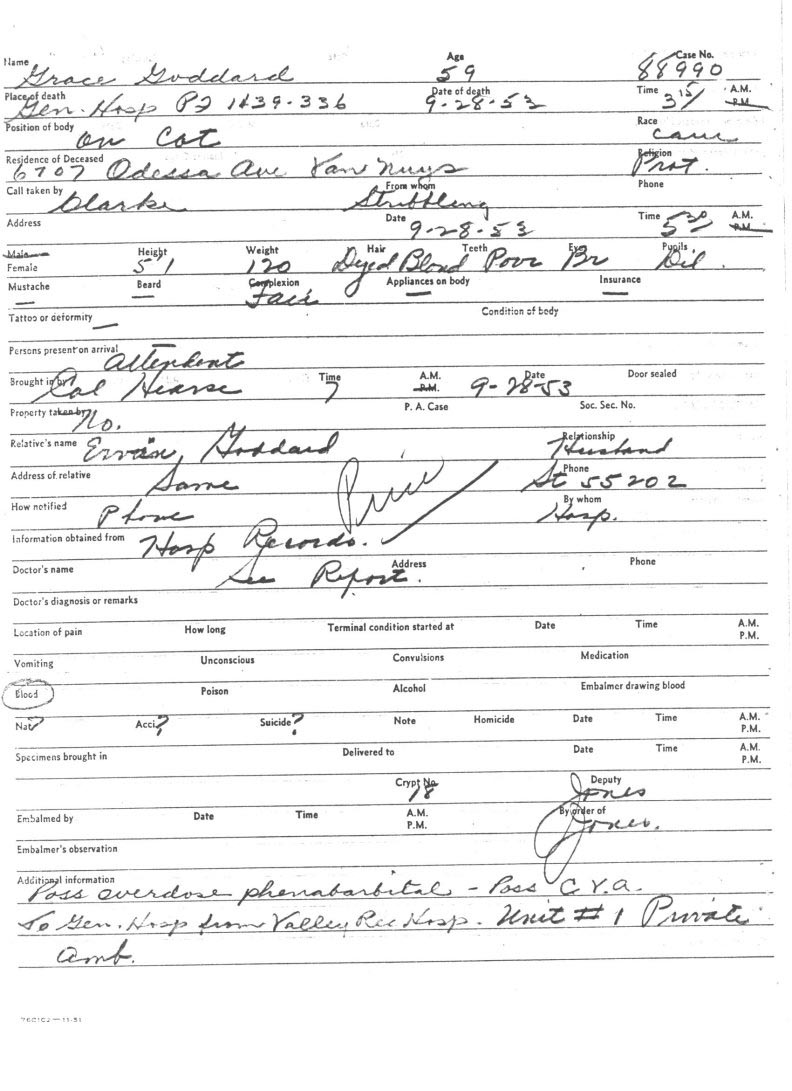 Name Grace Goddard Age 59 Case No. 88990
Place of death Gen. Hosp PF 1439-336 Date of death 9-28-53 Time 3 15/ A.M. P.M.
Position of body on Cot Race cauc
Residence of Deceased 6707 Odessa Ave Van Nuys Religion Prot.
Call taken by Clarke From whom Stribbling Phone
Address Date 9-28-53 Time 5 30 A.M. P.M.
Male Female Height 5 1 Weight 120 Hair Dyed Blond Teeth Poor Eyes Br Pupils Dil.
Mustache — Beard — Complexion Fair Appliances on body — Insurance —
Tattoo or deformity — Condition of body
Persons present on arrival Attendent
Brought in by Cal Hearse Time 7 A.M. P.M. Date 9-28-53 Door sealed
Property taken by No. P. A. Case Soc. Sec. No.
Relative's name Ervin, Goddard Relationship Husband
Address of relative Same Phone St 55202
How notified Phone By whom Hosp.
Information obtained from Hosp Records.
Doctor's name See Report. Address Phone
Doctor's diagnosis or remarks
Location of pain How long Terminal condition started at Date Time A.M. P.M.
Vomiting Unconscious Convulsions Medication
Blood Poison Alcohol Embalmer drawing blood
Nat ? Acci ? Suicide ? Note Homicide Date Time A.M. P.M.
Specimens brought in Delivered to Date Time A.M. P.M.
Crypt No. 18 Deputy Jones
Embalmed by Date Time A.M. P.M. By order of Jones.
Embalmer's observation
Additional information
Poss overdose phenabarbital - Poss C.V.a.
To Gen. Hosp from Valley Rec Hosp. Unit # 1 Private
amb.